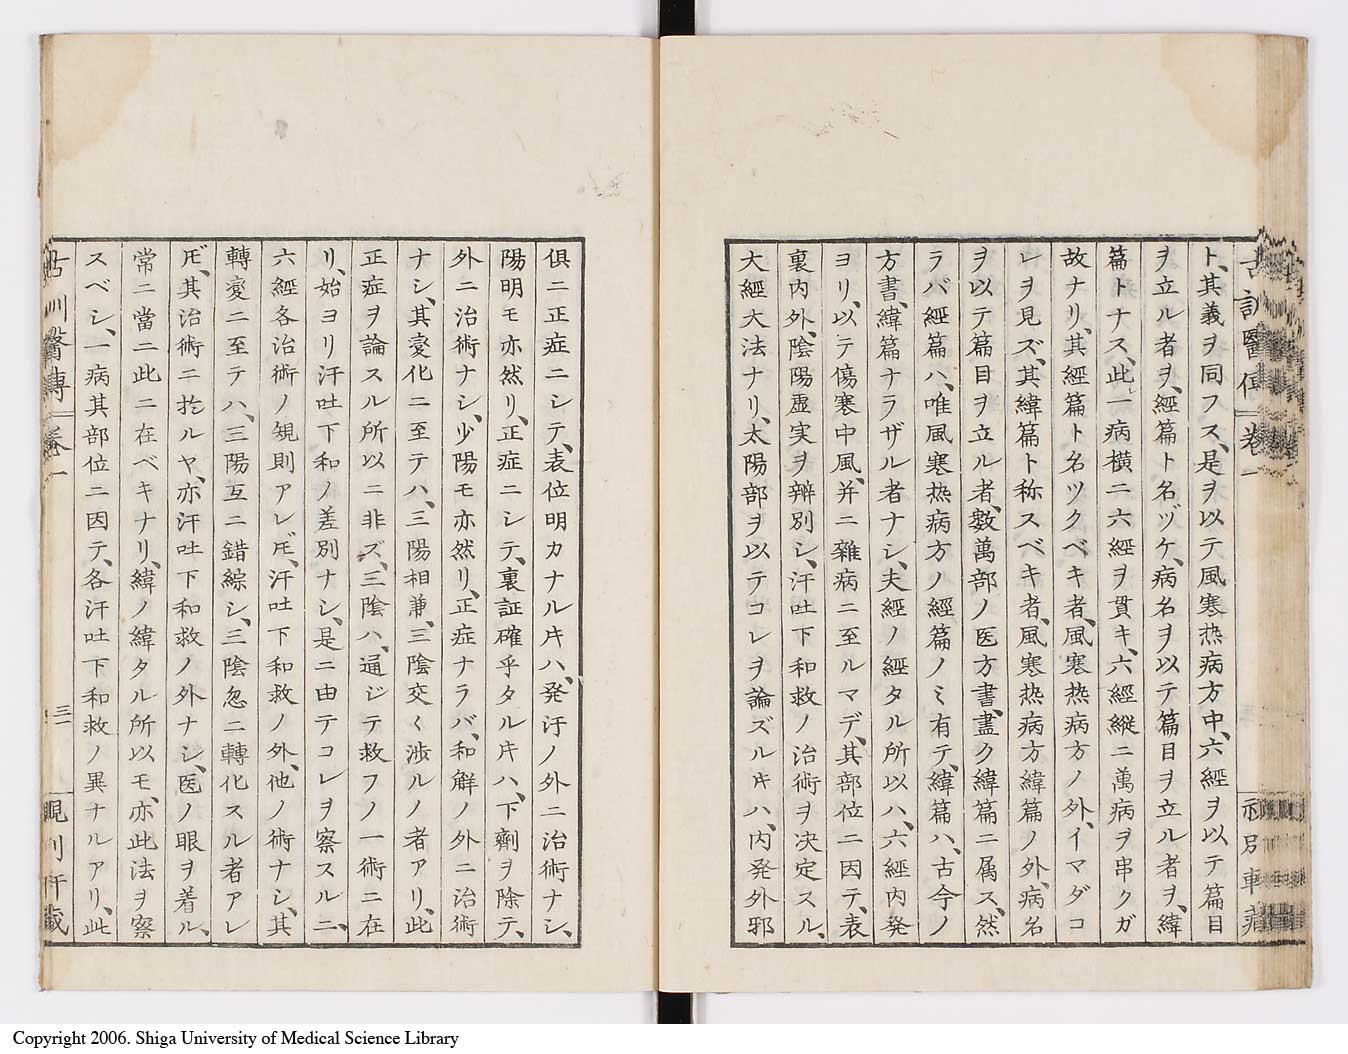 古訓醫傳 卷一
ト、其義ヲ同フス、是ヲ以テ風寒热病方中、六經ヲ以テ篇目
ヲ立ル者ヲ、經篇ト名ヅケ、病名ヲ以テ篇目ヲ立ル者ヲ、緯
篇トナス、此一病横ニ六經ヲ貫キ、六經縱ニ萬病ヲ串クガ
故ナリ、其經篇ト名ツクベキ者、風寒热病方ノ外、イマダコ
レヲ見ズ、其緯篇ト称スベキ者、風寒热病方緯篇ノ外、病名
ヲ以テ篇目ヲ立ル者、數萬部ノ医方書、盡ク緯篇ニ属ス、然
ラバ經篇ハ、唯風寒热病方ノ經篇ノミ有テ、緯篇ハ、古今ノ
方書、緯篇ナラザル者ナシ、夫經ノ經タル所以ハ、六經内発
ヨリ、以テ傷寒中風、并ニ雜病ニ至ルマデ、其部位ニ因テ、表
裏内外、陰陽虚実ヲ辨別シ、汗吐下和救ノ治術ヲ决定スル、
大經大法ナリ、太陽部ヲ以テコレヲ論ズルキハ、内発外邪
俱ニ正症ニシテ、表位明カナルキハ、発汗ノ外ニ治術ナシ、
陽明モ亦然リ、正症ニシテ、裏証確乎タルキハ、下劑ヲ除テ、
外ニ治術ナシ、少陽モ亦然リ、正症ナラバ、和解ノ外ニ治術
ナシ、其変化ニ至テハ、三陽相兼、三陰交く渉ルノ者アリ、此
正症ヲ論スル所以ニ非ズ、三陰ハ、通ジテ救フノ一術ニ在
リ、始ヨリ汗吐下和ノ差別ナシ、是ニ由テコレヲ察スルニ、
六經各治術ノ規則アレ𪜈、汗吐下和救ノ外、他ノ術ナシ、其
轉変ニ至テハ、三陽互ニ錯綜シ、三陰忽ニ轉化スル者アレ
𪜈、其治術ニ於ルヤ、亦汗吐下和救ノ外ナシ、医ノ眼ヲ着ル、
常ニ當ニ此ニ在ベキナリ、緯ノ緯タル所以モ、亦此法ヲ察
スベシ、一病其部位ニ因テ、各汗吐下和救ノ異ナルアリ、此
古訓醫傳 卷一
三
Copyright 2006. Shiga University of Medical Science Library